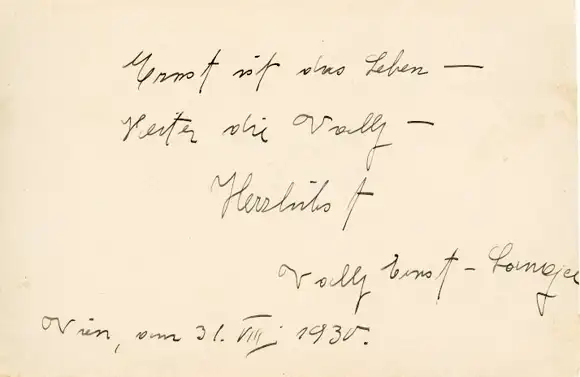 Ernst ist das Leben —
Heiter die Vally —
Herzlichst
Vally Ernst - Lange
Wien, am 31. VIII. 1930.